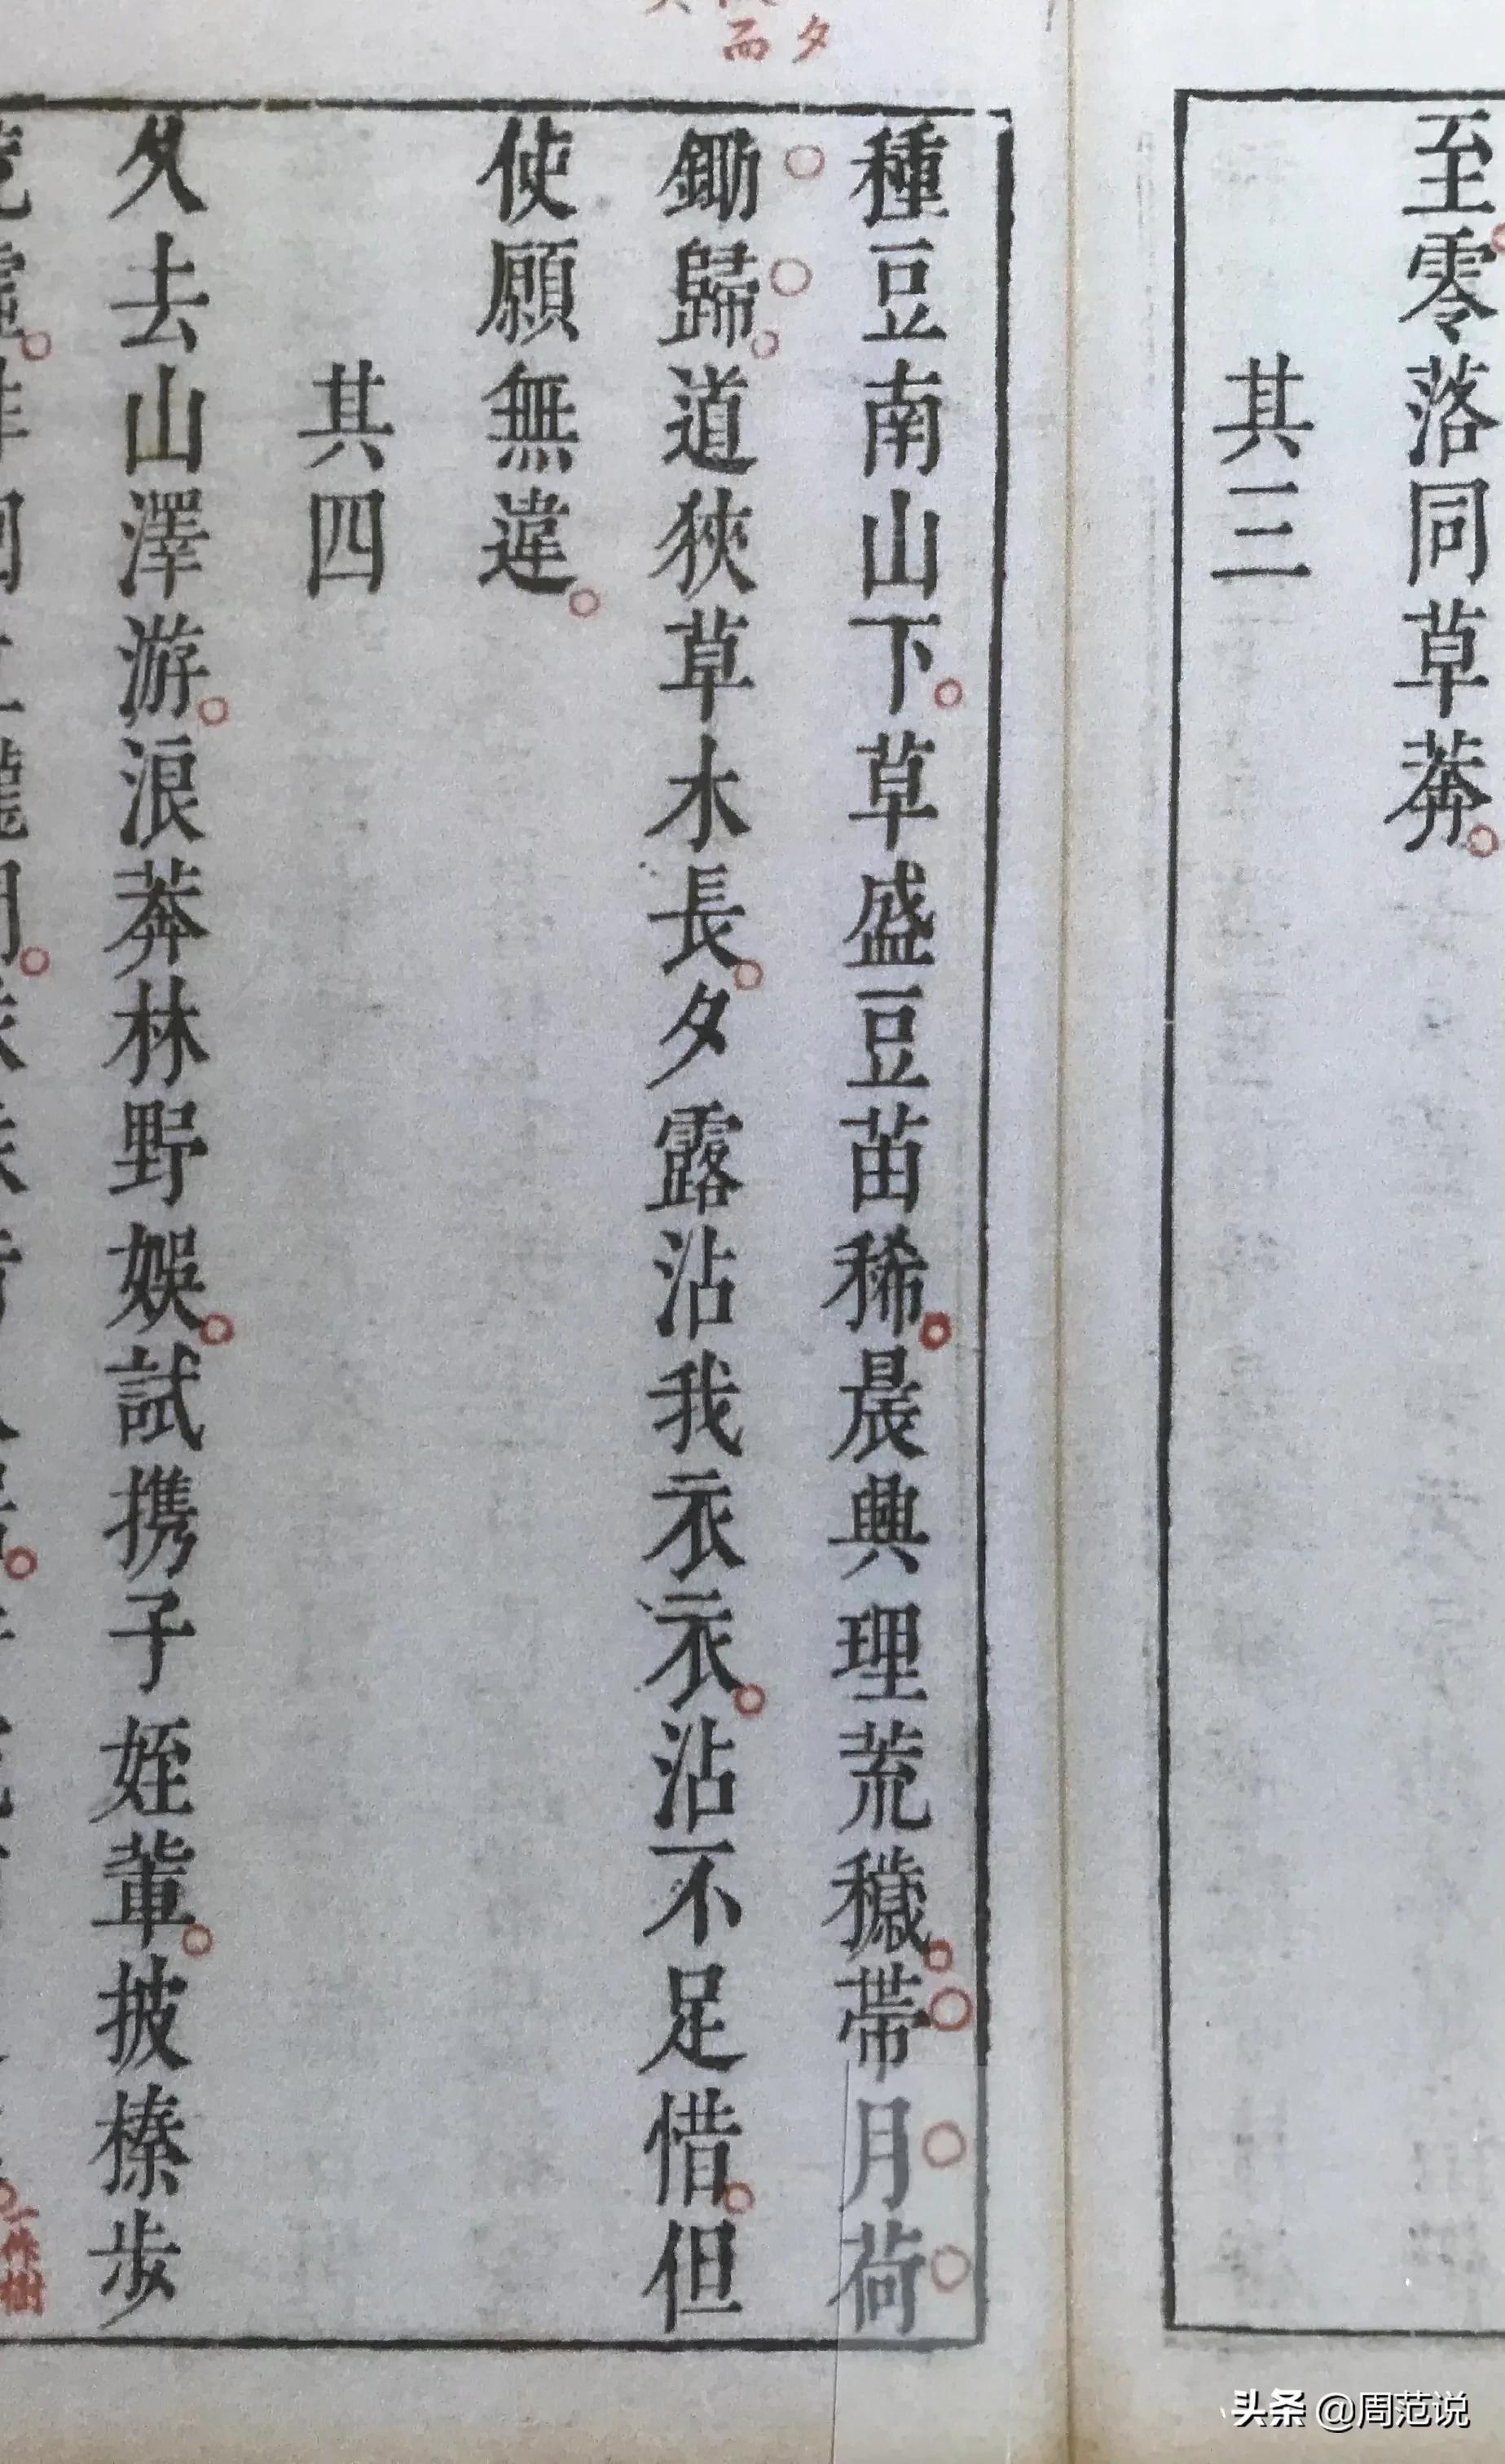 至零落同草莽
其三
種豆南山下草盛豆苗稀晨興理荒穢帶月荷
鋤歸道狹草木長夕露沾我衣衣沾不足惜但
使願無違
其四
久去山澤游浪莽林野娛試携子姪輩披榛步
夕
而
一作樹
头条 @周范说